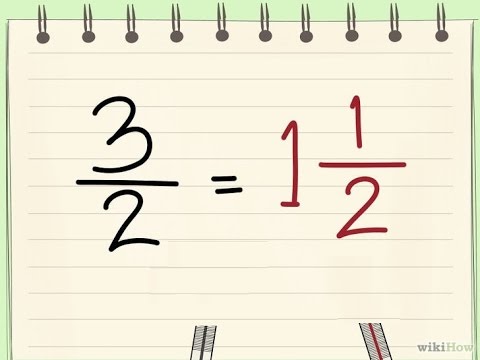 3/2 = 1 1/2
wikiHow